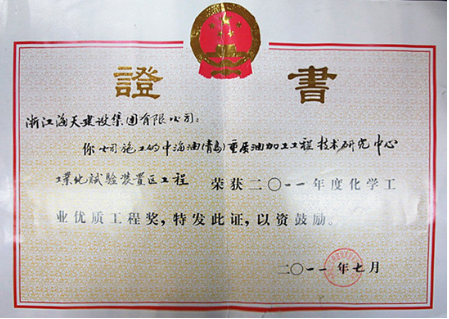 證書
浙江海天建设集团有限公司：
你公司施工的中海油(青岛)重质油加工工程技术研究中心
工业化试验装置区工程 荣获二〇一一年度化学工
业优质工程奖，特发此证，以资鼓励。
二〇一一年七月